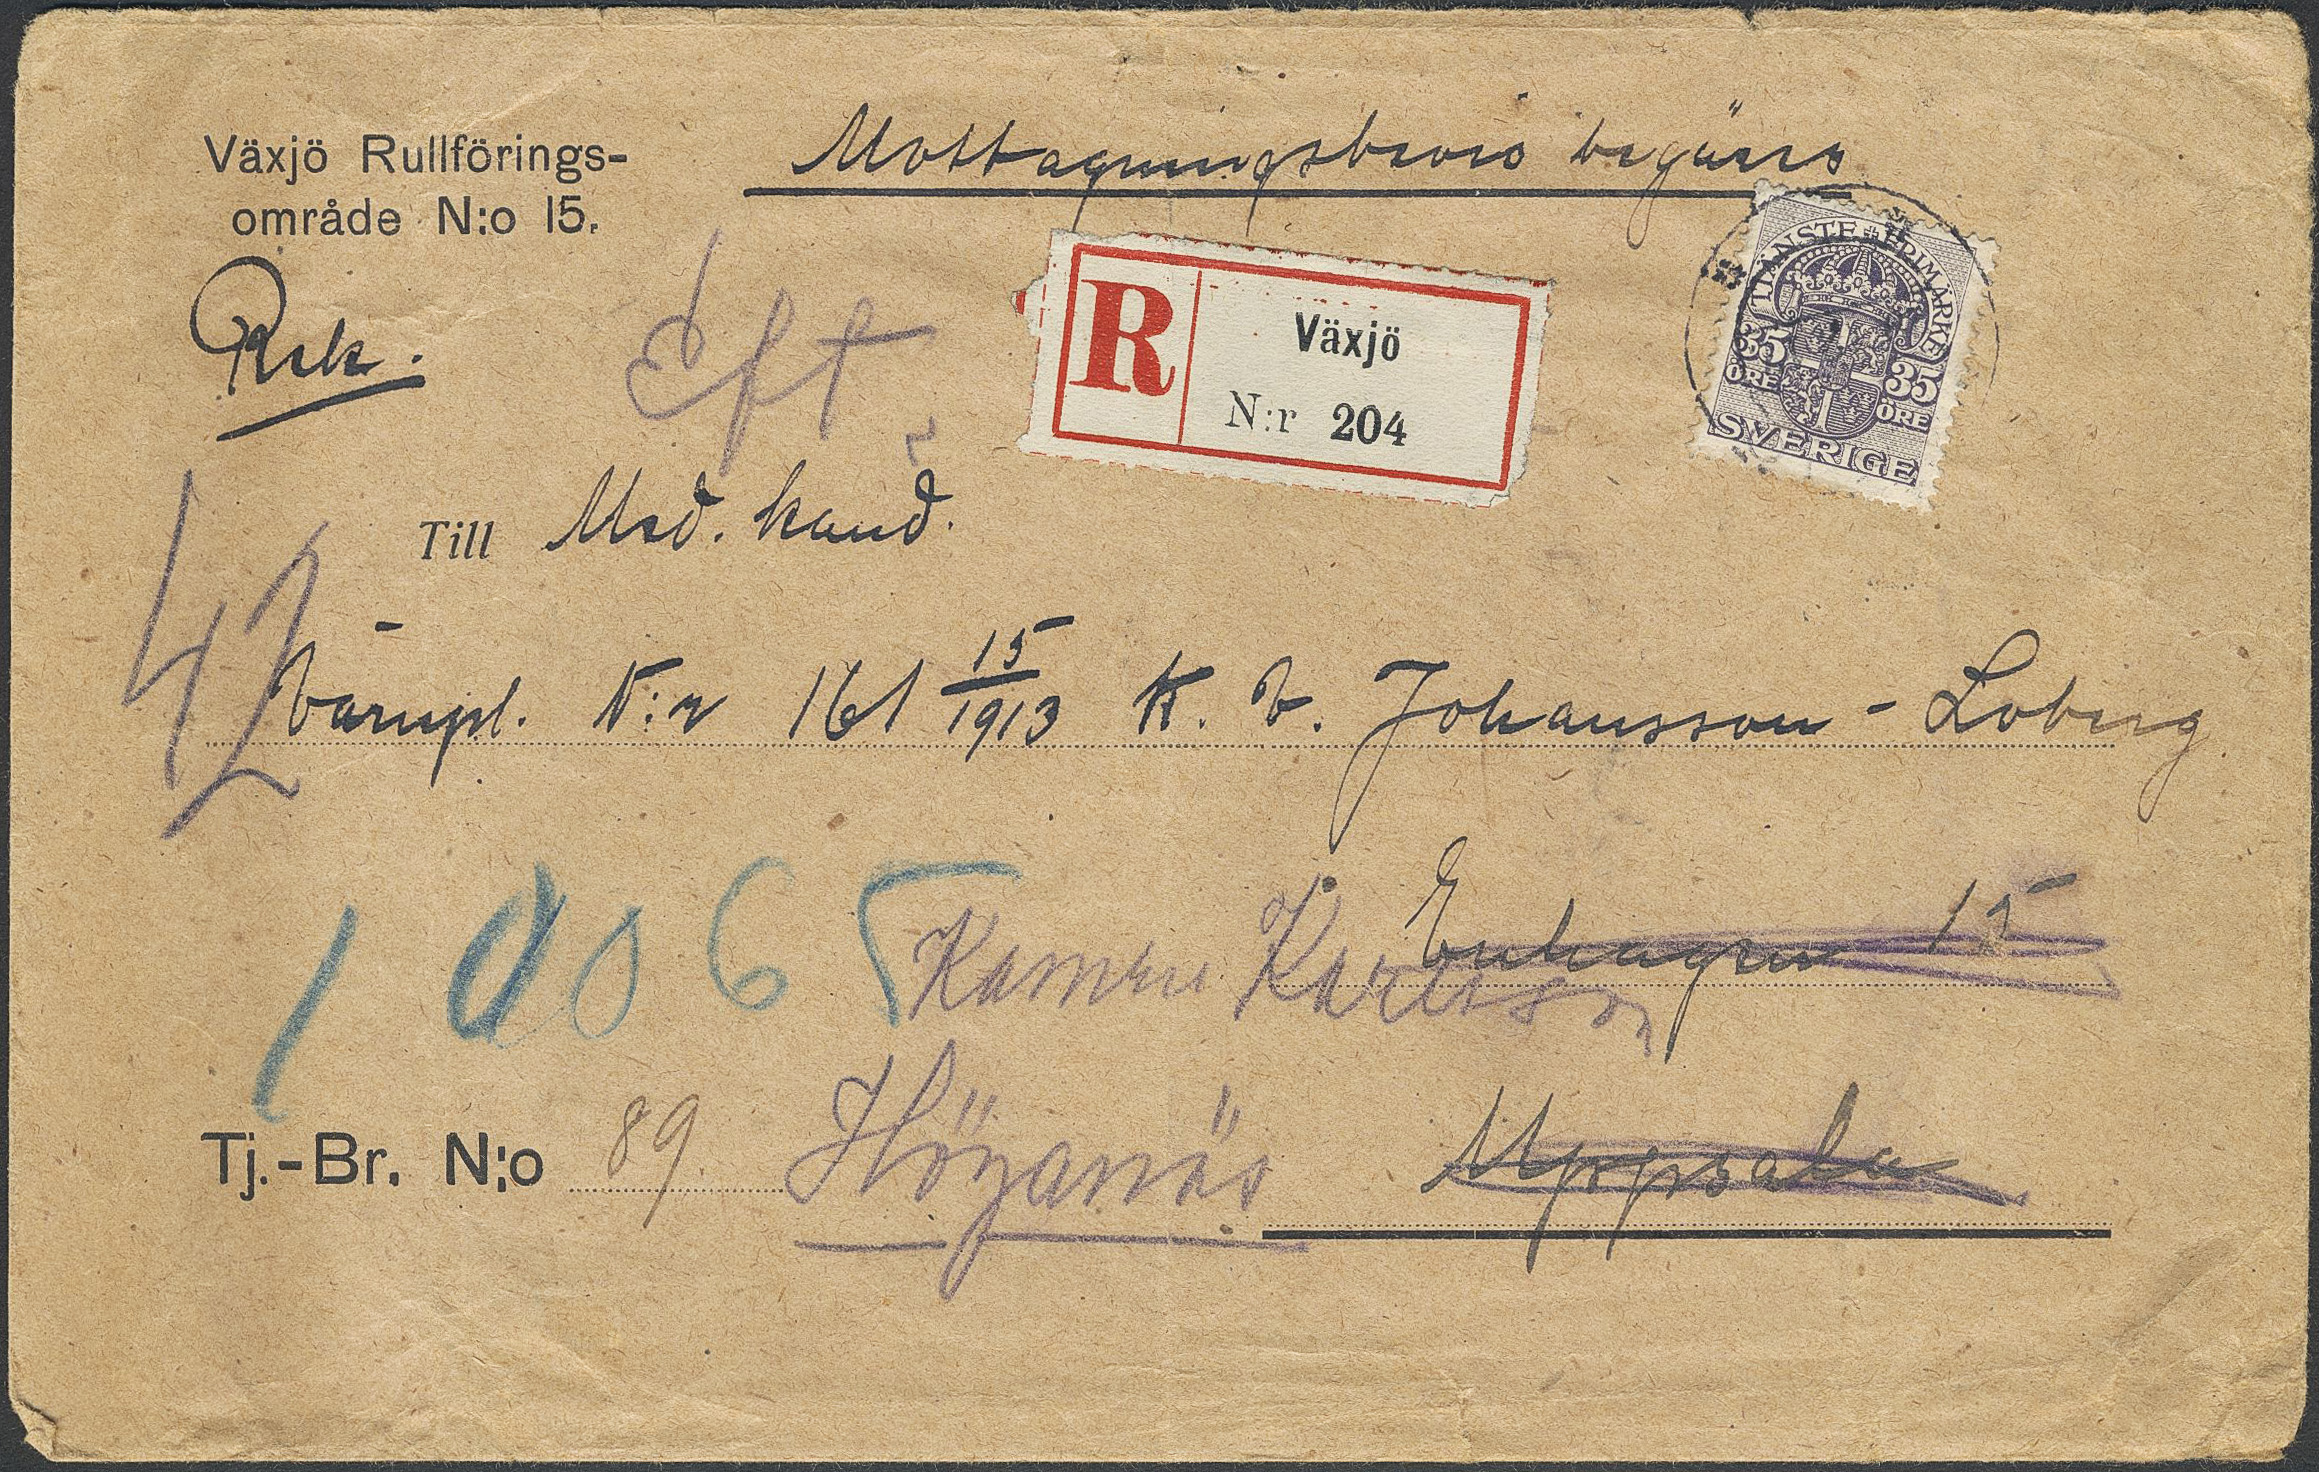 Växjö Rullförings-
område N:o 15.
Mottagningsbevis begäres
Rek.
Eft
R
Växjö
N:r 204
TJÄNSTEFRIMÄRKE
35 ÖRE
35 ÖRE
SVERIGE
Till Med. kand.
42
Värnpl. N:r 161 15/1913 K. V. Johansson - Loberg
15
1 0065
Karlsson
Tj.-Br. N:o 89.
Höganäs
Uppsala